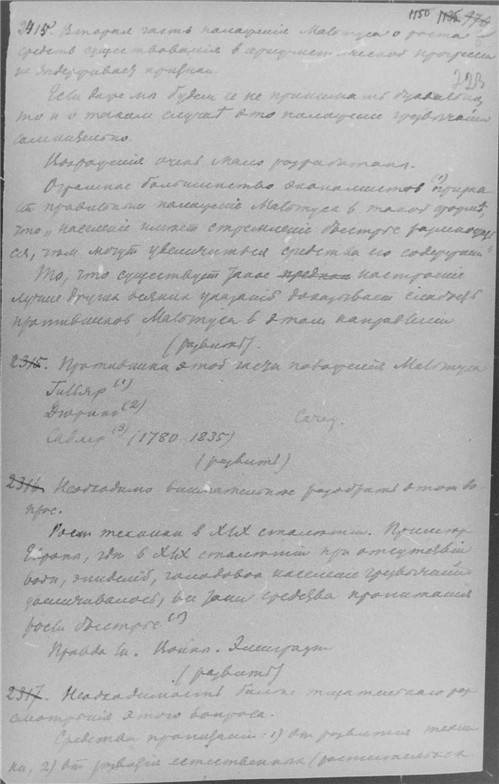 1150
723
2415. Вторая часть положения Мальтуса о росте
средств существования в арифметической прогрессии
не выдерживает критики.
Если даже мы будем и не принимать буквально,
то и в таком случае это положение чрезвычайно
сомнительно.
Возражения очень мало разработаны.
Огромное большинство экономистов (1)
правильным положение Мальтуса в такой форме,
что „население имеет стремление быстрее размножаться,
чем могут увеличиться средства его содержания".
То, что существует такое настроение
лучше других всяких указаний доказывает слабость
противников Мальтуса в этом направлении
(развить).
2315. Противники этой части положения Мальтуса
Гильяр (1)
Дюринг (2)
Садлер (3) (1780-1835)
(развить)
2316. Необходимо внимательно разобрать этот во-
прос.
Рост техники в XIX столетии. Пример
Европа, где в XIX столетии при отсутствии
войн, эпидемий, голодовок население чрезвычайно
увеличивалось, средства пропитания
росли быстрее (1)
Правда Война. Эмиграция
(развить)
2317. Необходимость более тщательного рас-
смотрения этого вопроса.
Средства пропитания: 1) от развития техни-
ки, 2) от развития естественных (растительных